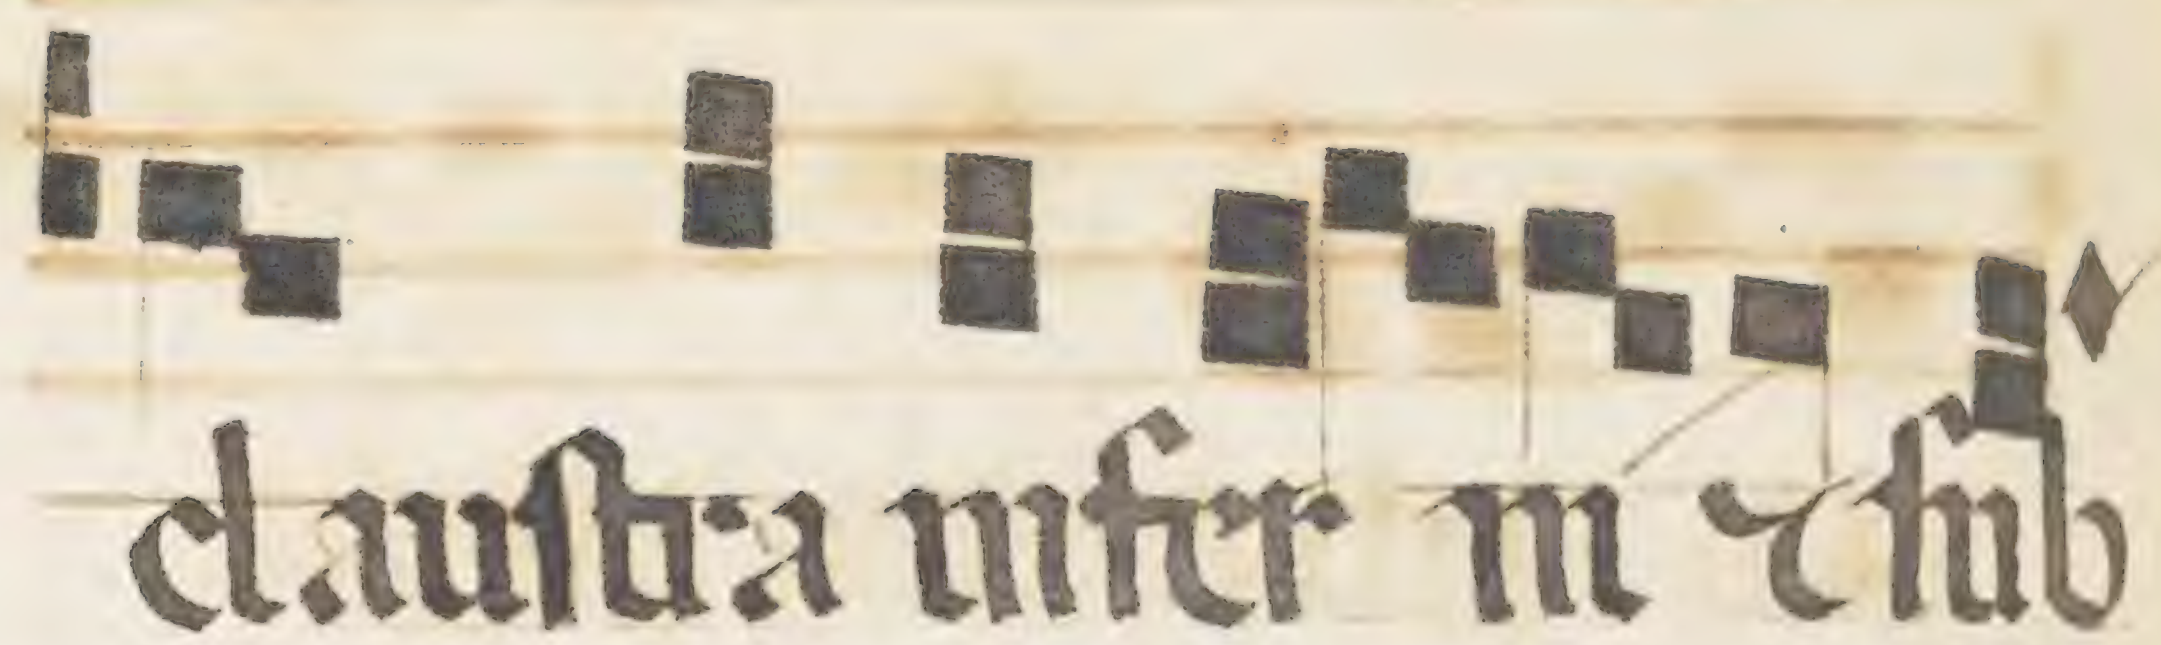 claustra infer ni ⁊ sub